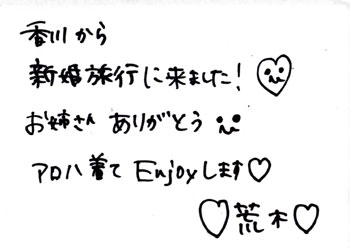 香川から
新婚旅行に来ました!
お姉さん ありがとう
アロハ着て Enjoyします♡
♡荒木♡